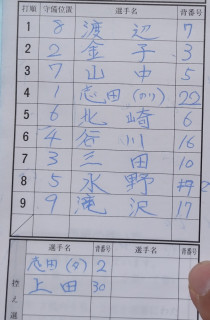 打順 守備位置 選手名 背番号
1 8 渡辺 7
2 2 金子 3
3 7 山中 5
4 1 志田(カリ) 22
5 6 北崎 6
6 4 谷川 16
7 3 三田 10
8 5 水野 2
9 9 滝沢 17
控え選
選手名 背番号 選手名 背番号
志田(タ) 2
上田 30